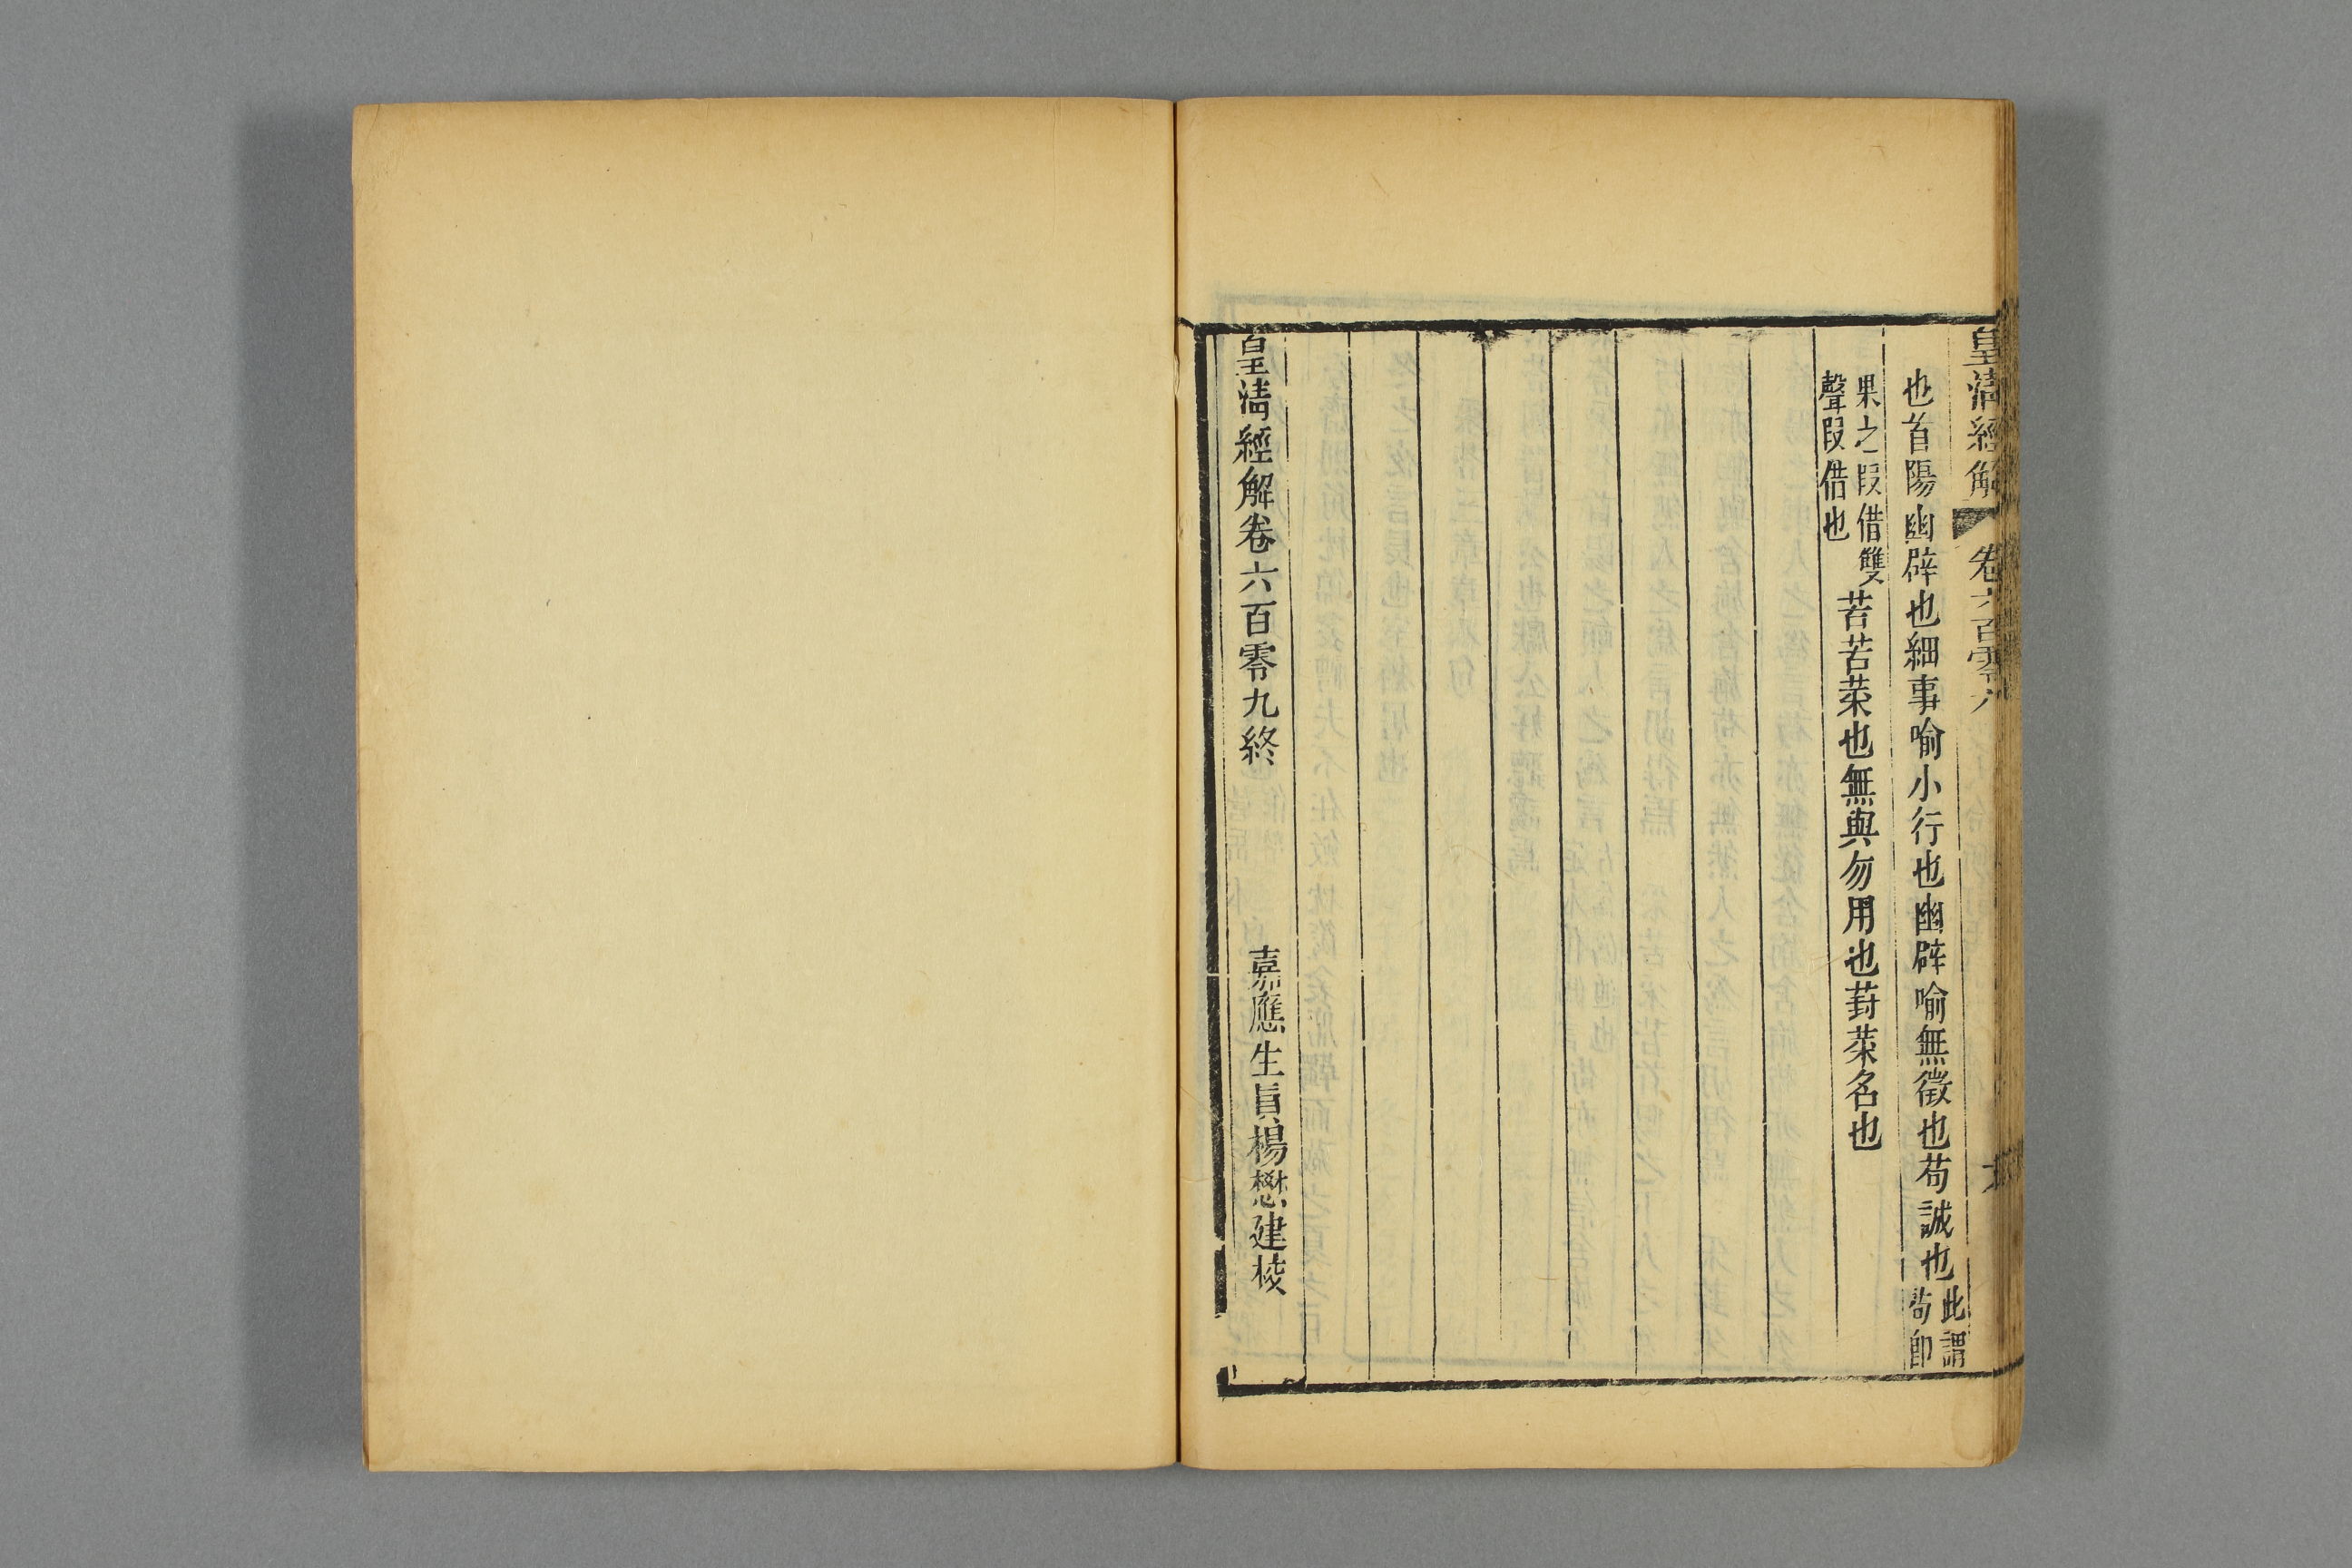 皇清經解 卷六百零八
也首陽幽辟也細事喻小行也幽辟喻無徵也苟誠也此謂
苟卽
果之叚借雙
聲叚借也
苦苦菜也無與勿用也葑菜名也
皇清經解卷六百零九終 嘉應生員楊懋建校